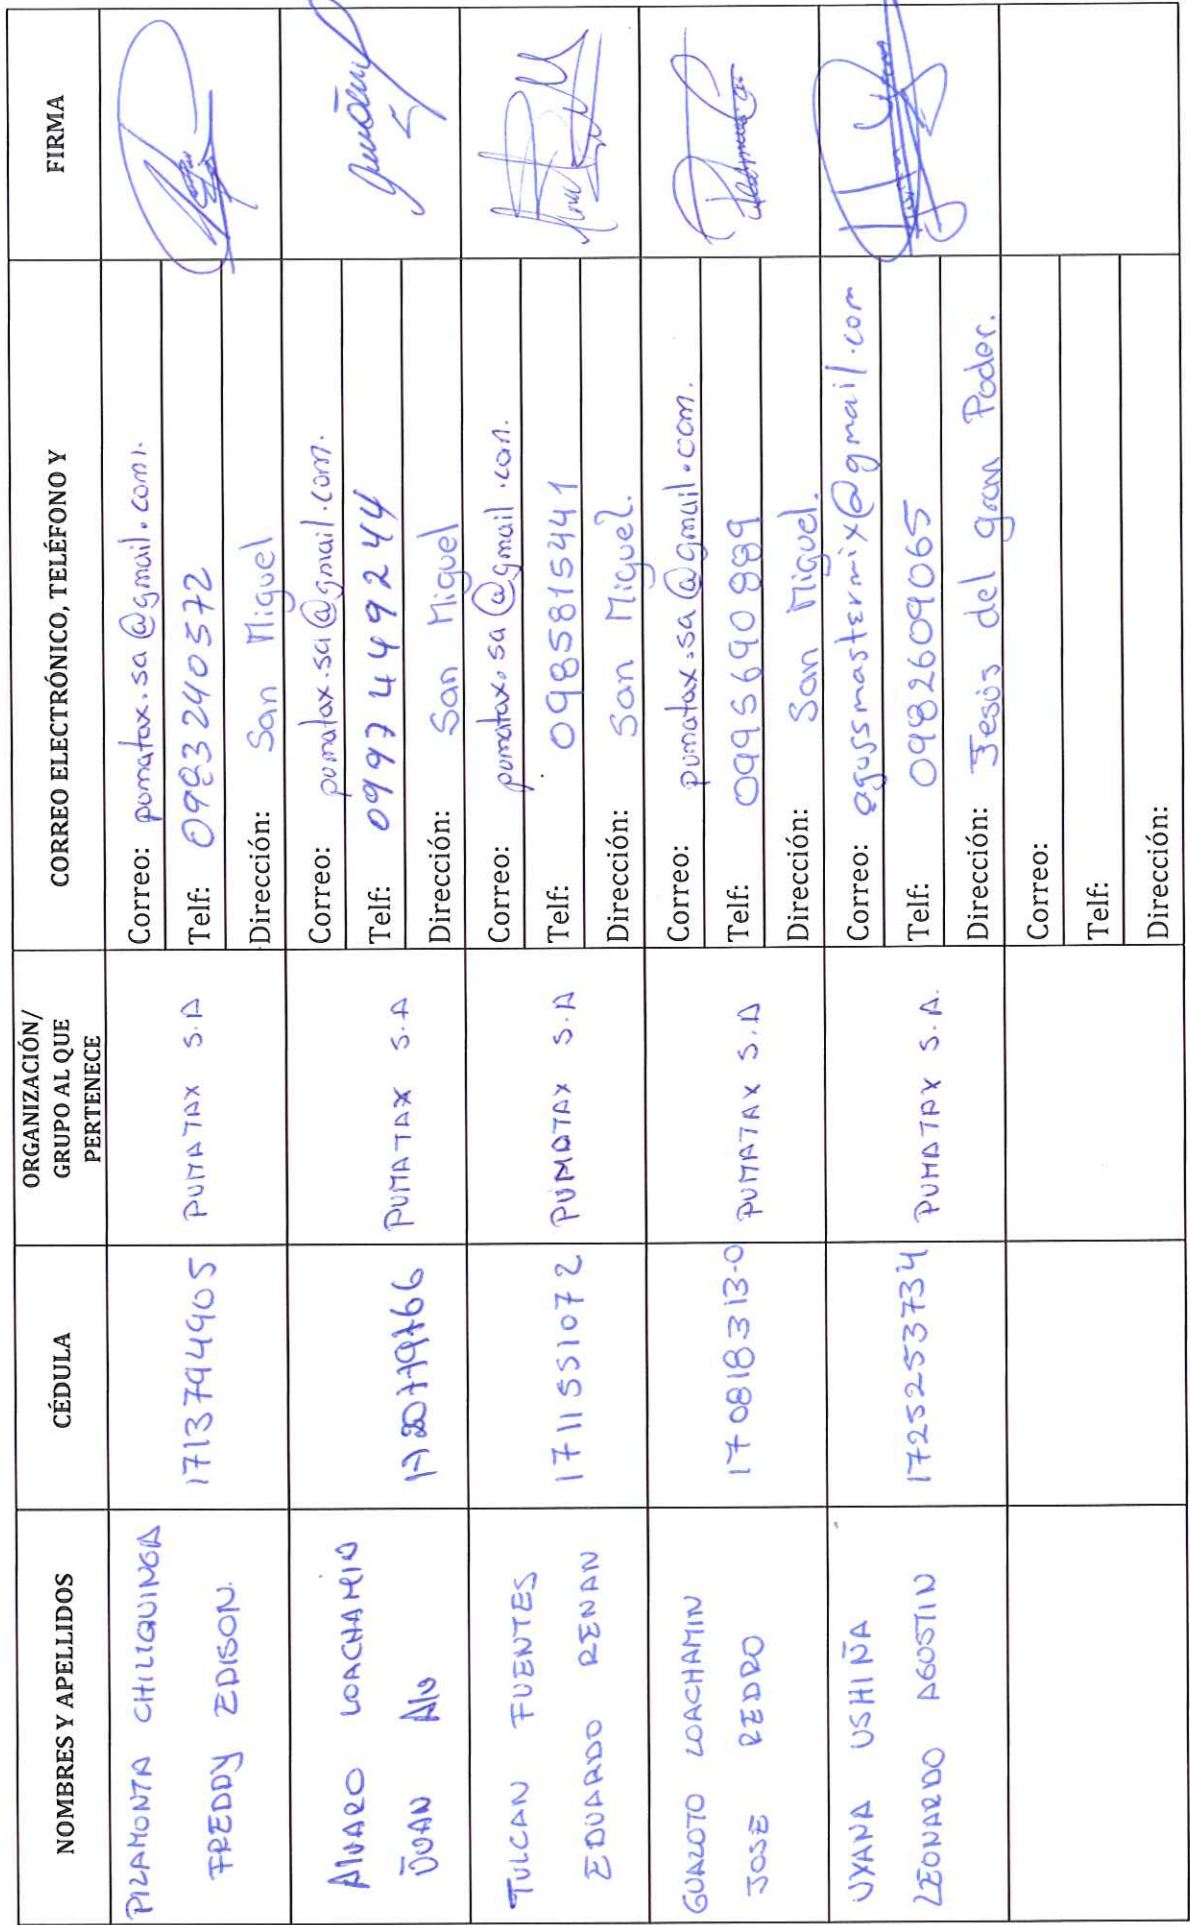 NOMBRES Y APELLIDOS
CÉDULA
ORGANIZACIÓN/
GRUPO AL QUE
PERTENECE
CORREO ELECTRÓNICO, TELÉFONO Y
FIRMA
PILAMONTA CHILIQUINGA
FREDDY EDISON.
1713794905
PUMATAX S.A
Correo: pumatax.sa@gmail.com.
Telf: 0983240572
Dirección: San Miguel
ALVARO LOACHAMIN
JUAN
PUMATAX S.A
Correo: pumatax.sa@gmail.com.
Telf: 0997449244
Dirección: San Miguel
TULCAN FUENTES
EDUARDO RENAN
1711551072
PUMATAX S.A
Correo: pumatax.sa@gmail.com.
Telf: 0985815441
Dirección: San Miguel.
GUALOTO LOACHAMIN
JOSE PEDRO
170818313-0
PUMATAX S.A
Correo: pumatax.sa@gmail.com.
Telf: 0995690889
Dirección: San Miguel.
UYANA USHIÑA
LEONARDO AGUSTIN
1725253734
PUMATAX S.A.
Correo: agussmastermix@gmail.com
Telf: 0982609065
Dirección: Jesús del gran Poder.
Correo:
Telf:
Dirección: